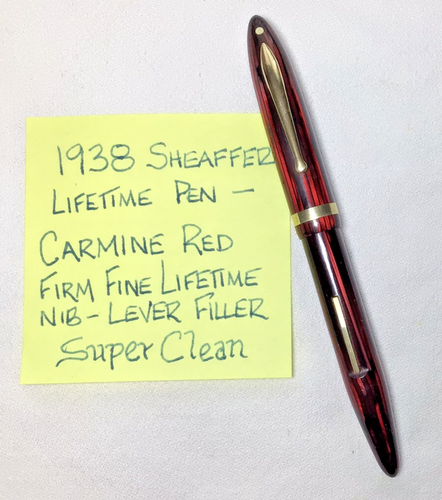 1938 SHEAFFER
LIFETIME PEN –
CARMINE RED
FIRM FINE LIFETIME
NIB – LEVER FILLER
Super Clean